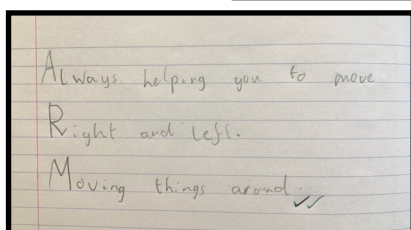 Always helping you to move
Right and left.
Moving things around.